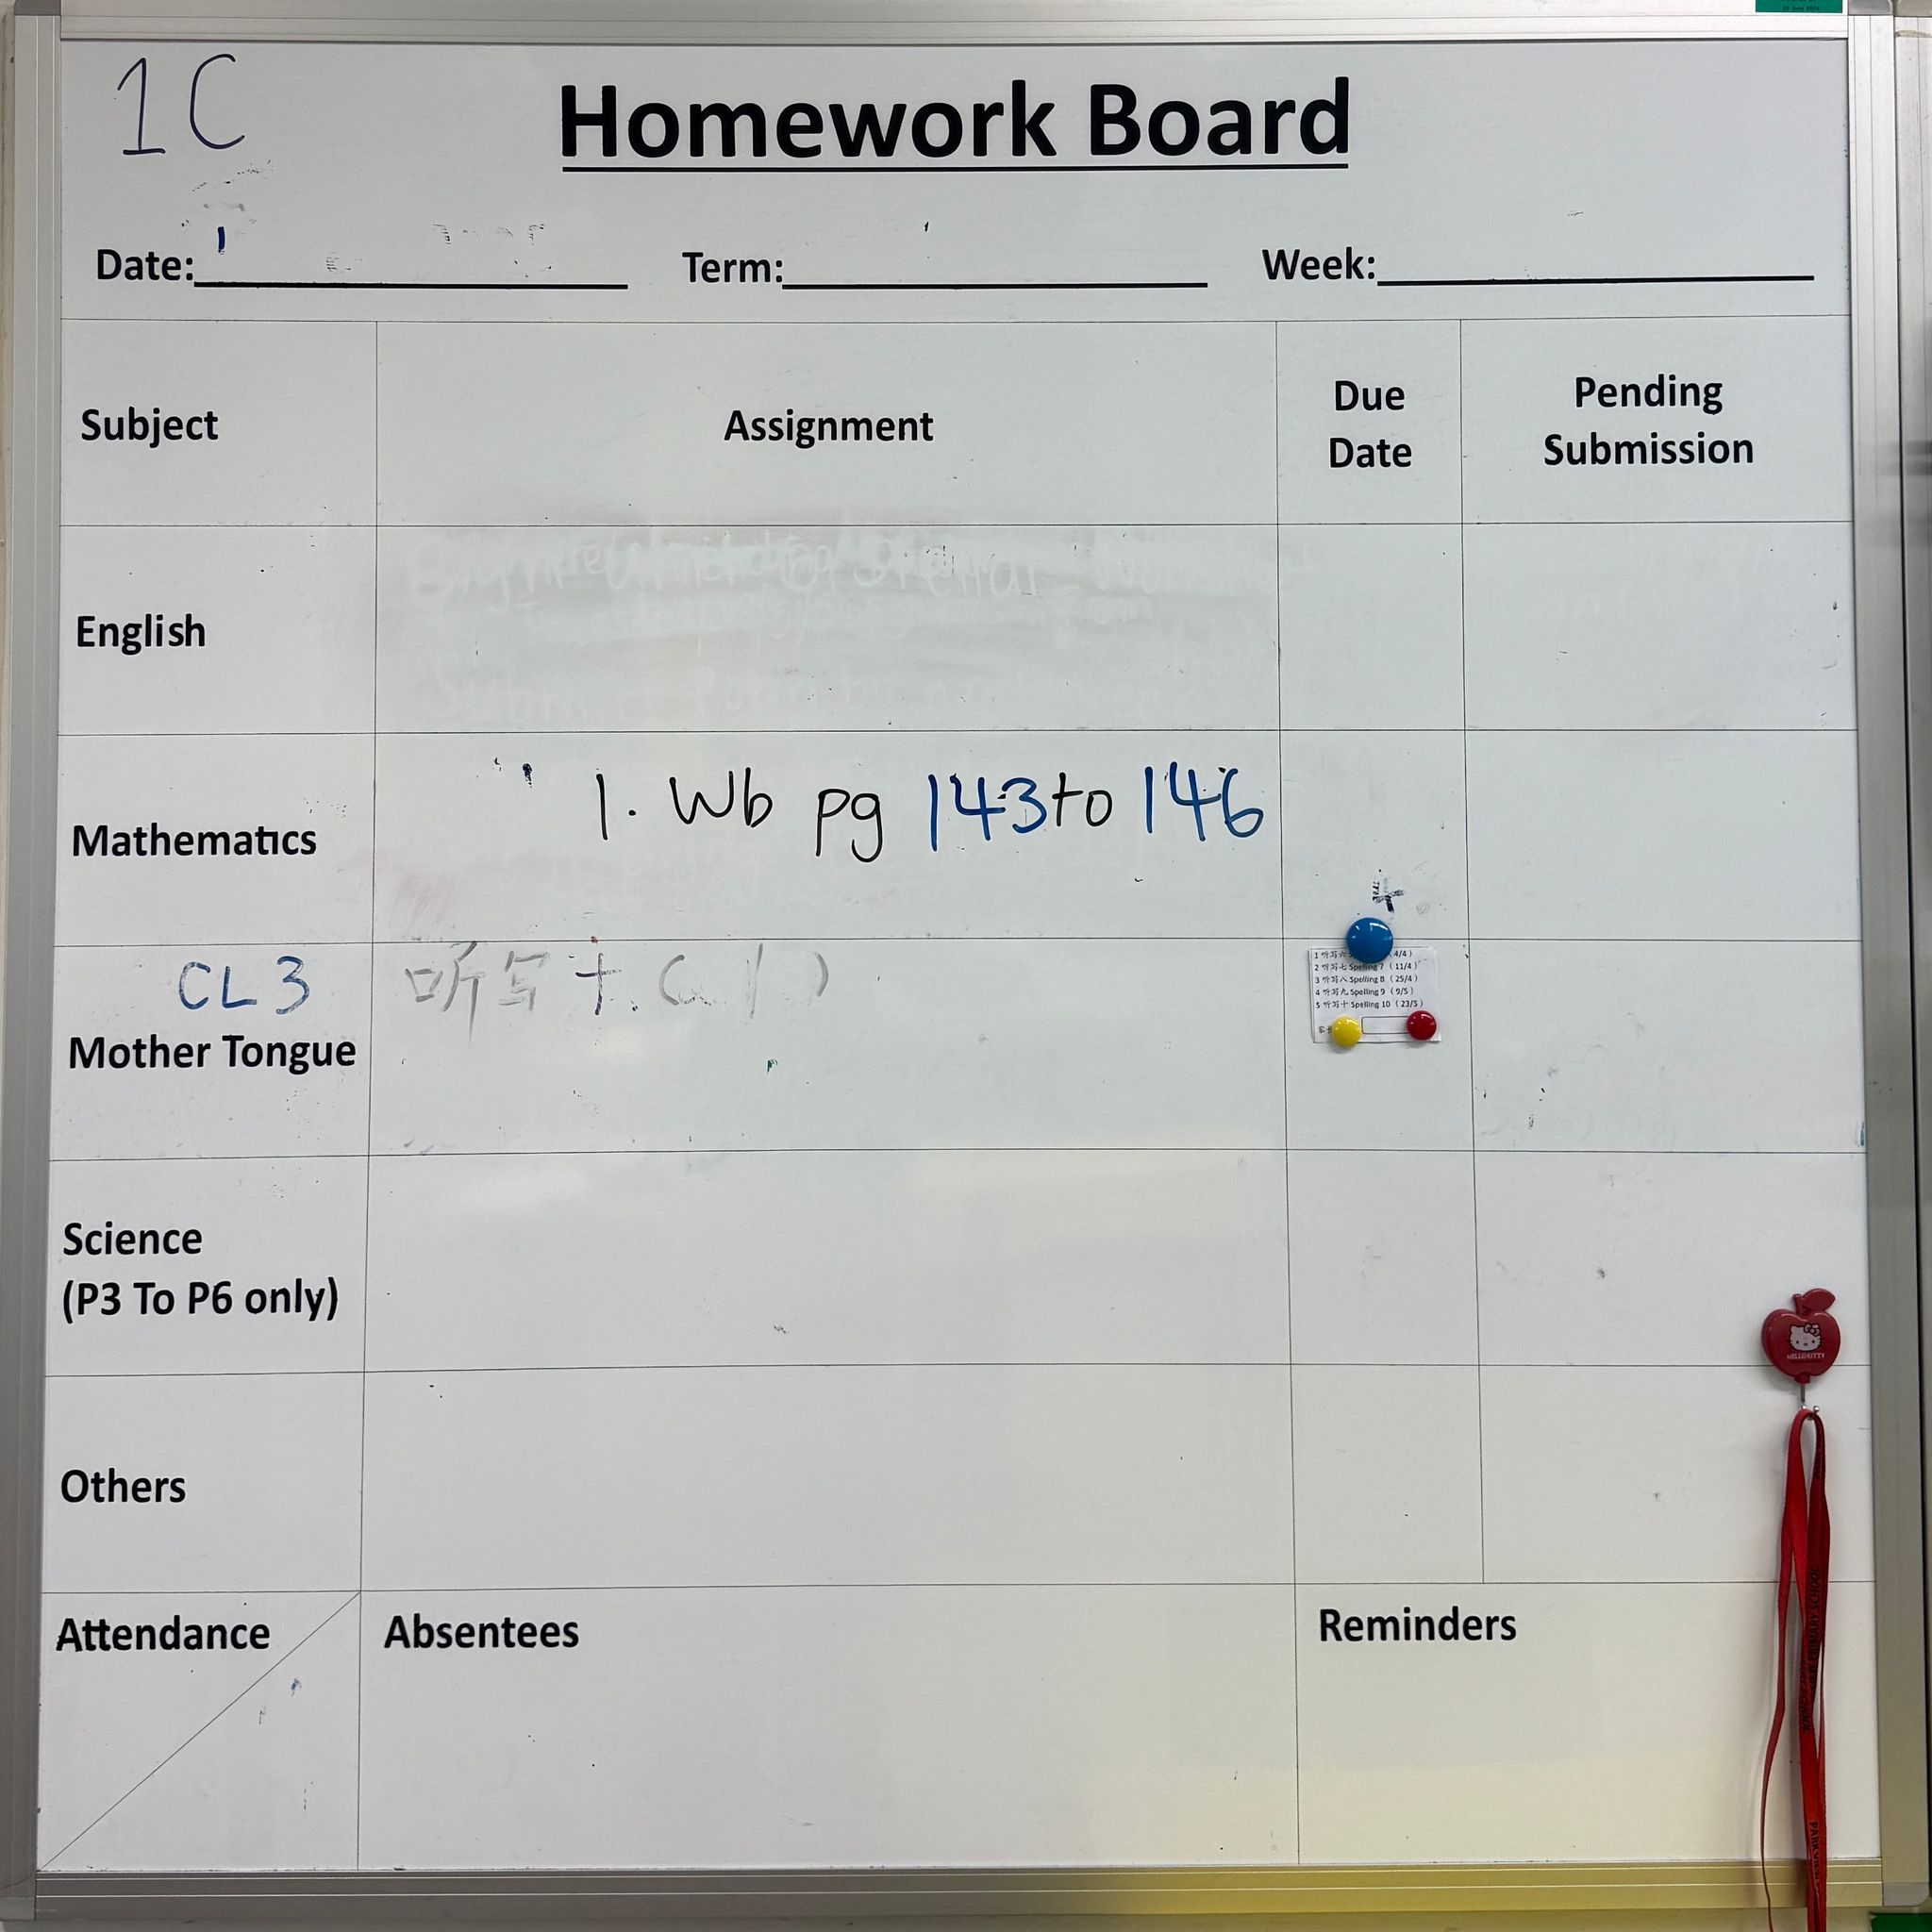 1C
Homework Board
Date: Term: Week:
Subject Assignment Due Date Pending Submission
English
Mathematics 1. Wb pg 143 to 146
CL3 听写十.
Mother Tongue
1 听写六 (4/4)
2 听写七 Spelling 7 (11/4)
3 听写八 Spelling 8 (25/4)
4 听写九 Spelling 9 (9/5)
5 听写十 Spelling 10 (23/5)
Science
(P3 To P6 only)
HELLO KITTY
Others
Attendance Absentees Reminders